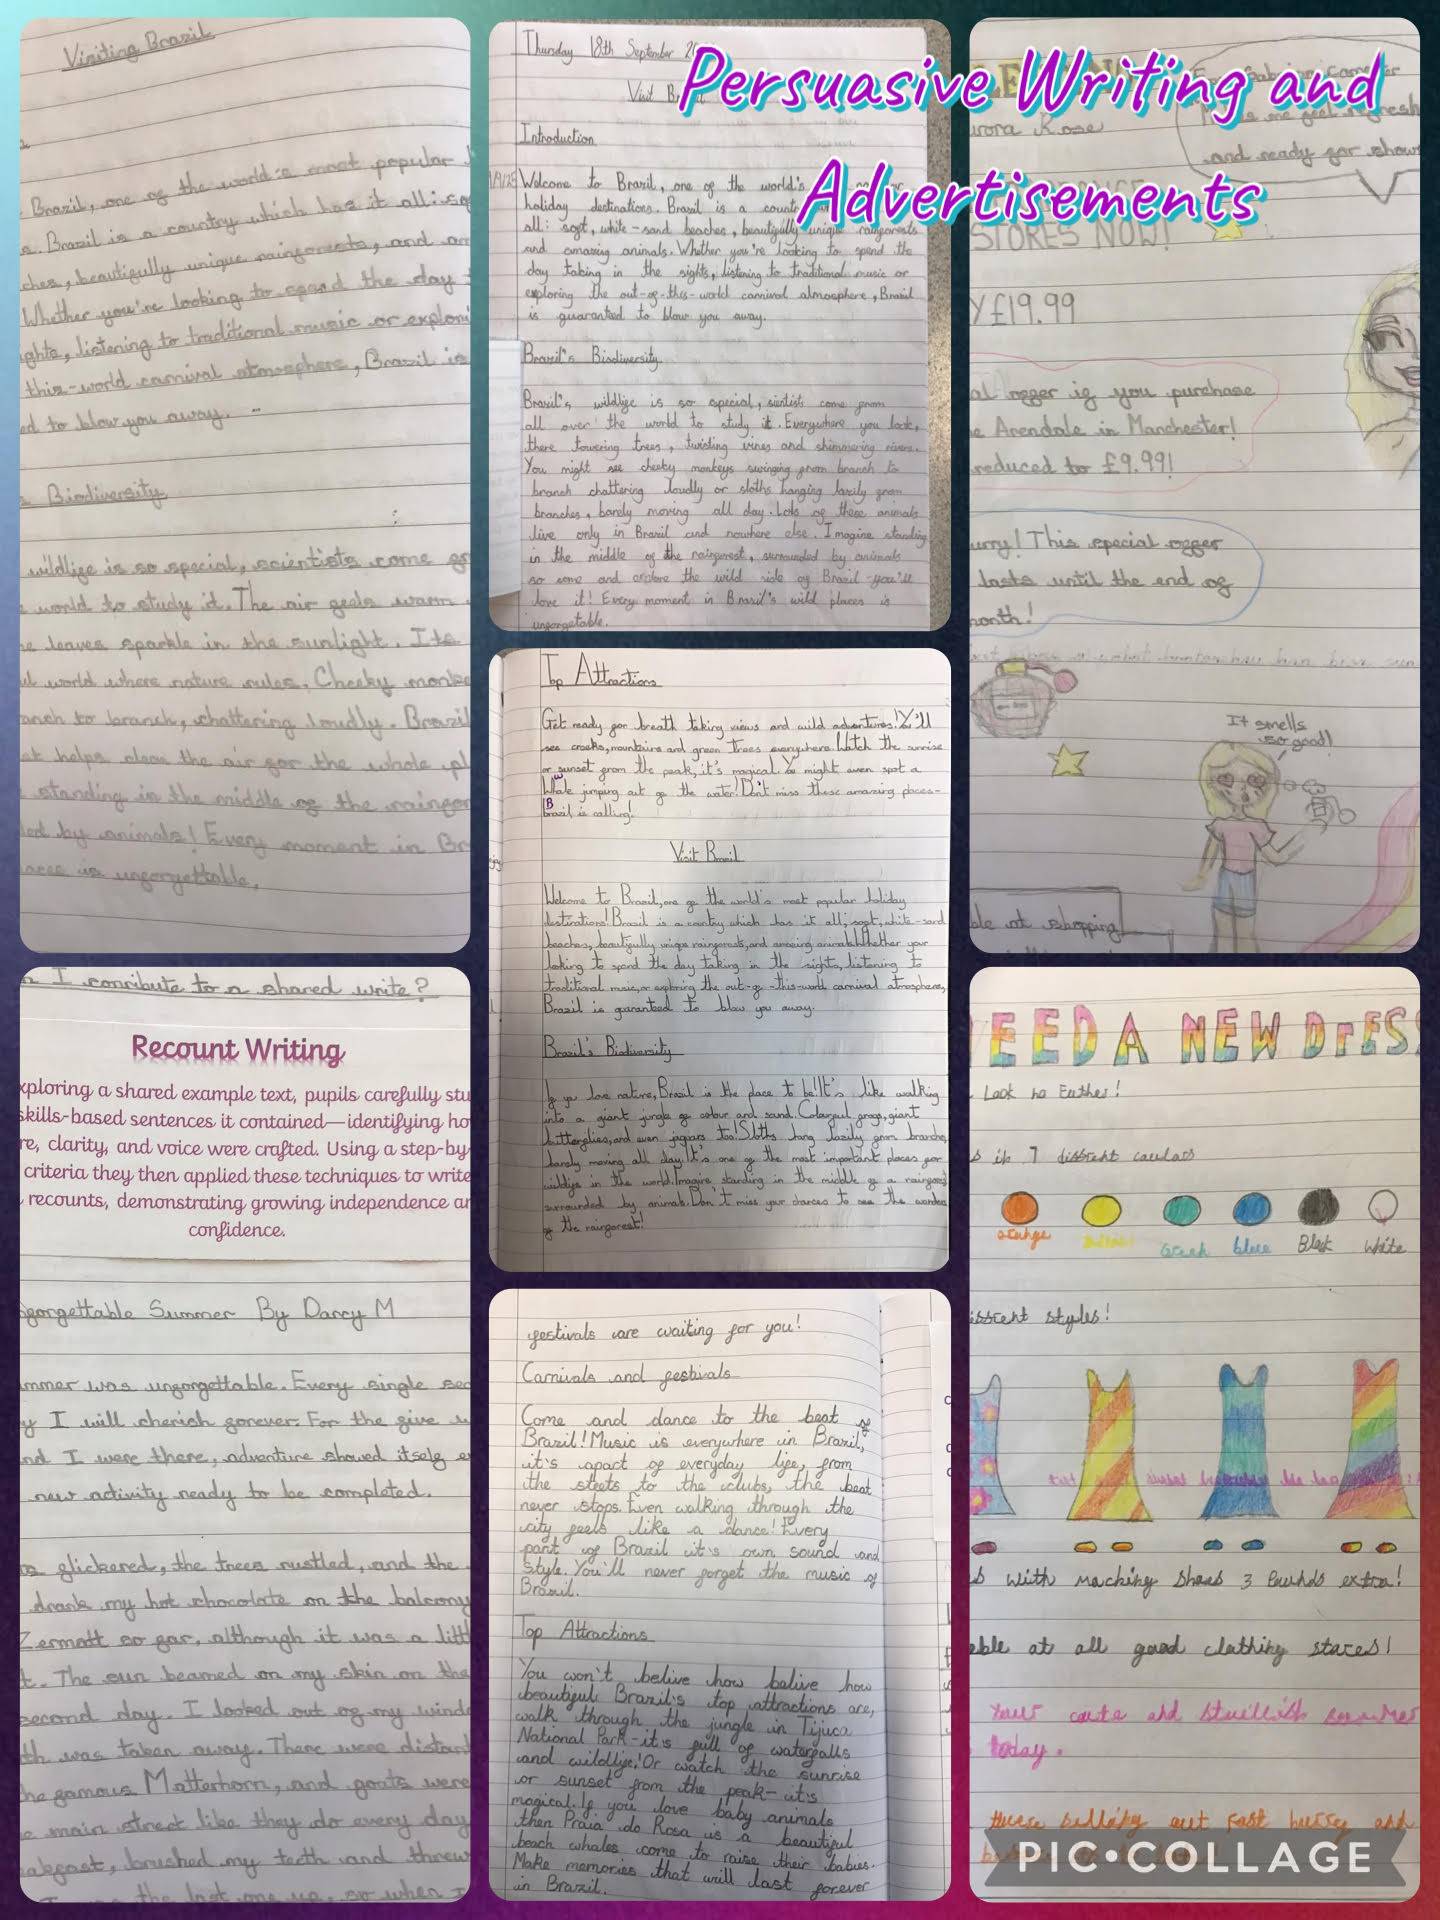 Persuasive Writing and
Advertisements
Visiting Brazil
Brazil, one of the world's most popular
s. Brazil is a country which has it all: so
ches, beautifully unique rainforests, and am
Whether you're looking to spend the day t
ghts, listening to traditional music or explori
this-world carnival atmosphere, Brazil is
ed to blow you away.
Biodiversity
wildlife is so special, scientists come fr
world to study it. The air feels warm
e leaves sparkle in the sunlight. Its
ul world where nature rules. Cheeky monke
anch to branch, chattering loudly. Brazil
at helps clean the air for the whole pl
standing in the middle of the rainfor
ed by animals! Every moment in Br
laces is unforgettable,
Thursday 18th September
Visit
Introduction
Welcome to Brazil, one of the world's
holiday destinations. Brazil is a count
all: soft, white-sand beaches, beautifully unique rainforests
and amazing animals. Whether you're looking to spend the
day taking in the sights, listening to traditional music or
exploring the out-of-this-world carnival atmosphere, Brazil
is guaranteed to blow you away.
Brazil's Biodiversity
Brazil's wildlife is so special, sientists come from
all over the world to study it. Everywhere you look,
there towering trees, twisting vines and shimmering rivers.
You might see cheeky monkeys swinging from branch to
branch chattering loudly or sloths hanging lazily from
branches, barely moving all day. Lots of these animals
live only in Brazil and nowhere else. Imagine standing
in the middle of the rainforest, surrounded by animals
so come and explore the wild side of Brazil-you'll
love it! Every moment in Brazil's wild places is
unforgetable.
Top Attractions
Get ready for breath taking views and wild adventures! You'll
see creeks, mountains and green trees everywhere. Watch the sunrise
or sunset from the peak, it's magical. You might even spot a
Whale jumping out of the water! Don't miss these amazing places-
Brazil is calling!
Visit Brazil
Welcome to Brazil, one of the world's most popular holiday
destinations! Brazil is a country which has it all; soft, white-sand
beaches, beautifully unique rainforests, and amazing animals. Whether your
looking to spend the day taking in the sights, listening to
traditional music, or exploring the out-of-this-world carnival atmosphere,
Brazil is guaranteed to blow you away.
Brazil's Biodiversity
If you love nature, Brazil is the place to be! It's like walking
into a giant jungle of colour and sound. Colourful frogs, giant
butterflies, and even jaguars too! Sloths hang lazily from branches,
barely moving all day. It's one of the most important places for
wildlife in the world. Imagine standing in the middle of a rainforest
surrounded by animals. Don't miss your chances to see the wonders
of the rainforest!
festivals are waiting for you!
Carnivals and festivals
Come and dance to the beat of
Brazil! Music is everywhere in Brazil,
it's apart of everyday life, from
the steets to the clubs, the beat
never stops. Even walking through the
city feels like a dance! Every
part of Brazil it's own sound and
style. You'll never forget the music of
Brazil.
Top Attractions
You won't belive how belive how
beautiful Brazil's top attractions are,
walk through the jungle in Tijuca
National Park-it's full of waterfalls
and wildlife! Or watch the sunrise
or sunset from the peak-it's
magical. If you love baby animals
then Praia do Rosa is a beautiful
beach whales come to raise their babies.
Make memories that will last forever
in Brazil.
urora Rose
me feel refresh
and ready for show
STORES NOW!
Y £19.99
al offer if you purchase
e Arendale in Manchester!
reduced to £9.99!
urry! This special offer
lasts until the end of
month!
It smells
so good!
ble at shopping
I conribute to a shared write?
Recount Writing
xploring a shared example text, pupils carefully stu
skills-based sentences it contained—identifying ho
re, clarity, and voice were crafted. Using a step-by-
criteria they then applied these techniques to write
recounts, demonstrating growing independence an
confidence.
forgettable Summer By Darcy M
mmer was unforgettable. Every single sec
y I will cherish forever. For the five
nd I were there, adventure showed itself e
new activity ready to be completed.
glickered, the trees rustled, and the
drank my hot chocolate on the balcony
Zermatt so far, although it was a litt
t. The sun beamed on my skin on the
second day. I looked out of my windo
th was taken away. There were distan
he famous Matterhorn, and goats were
main street like they do every day
eakfast, brushed my teeth and threw
the last one up, so when I
EED A NEW DrESS
Look no Further!
s in 7 diffrent coulars
orange
Green
blue
Black
White
iffrent styles!
s with maching shoes 3 Pounds extra!
able at all good clothing stores!
today.
selling out fast hurry and
PIC•COLLAGE